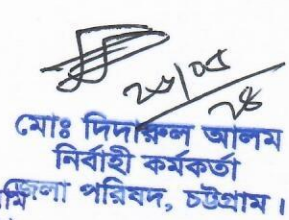 ২৫/০৫/২৪
মোঃ দিদারুল আলম
নির্বাহী কর্মকর্তা
জেলা পরিষদ, চট্টগ্রাম।